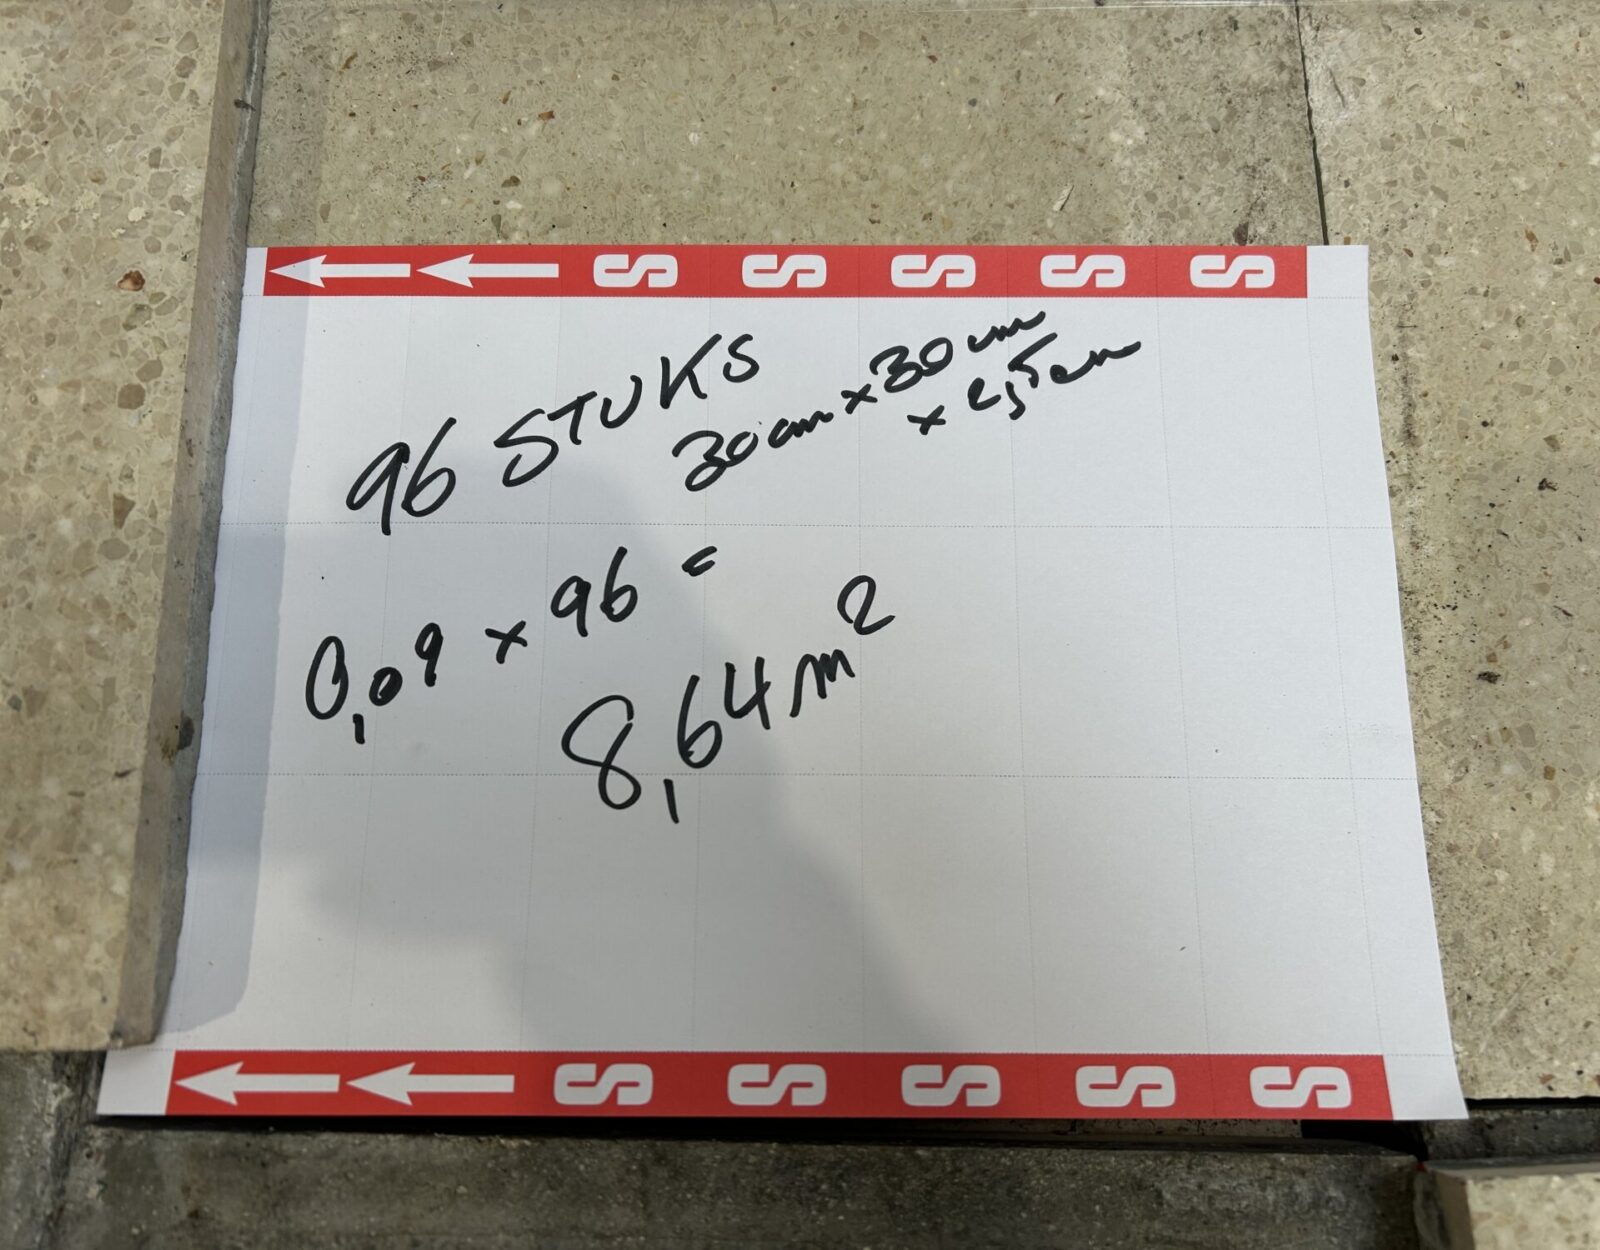 S S S S S
96 STUKS
30cm x 30cm
x 2,5cm
0,09 x 96 =
8,64 m²
S S S S S